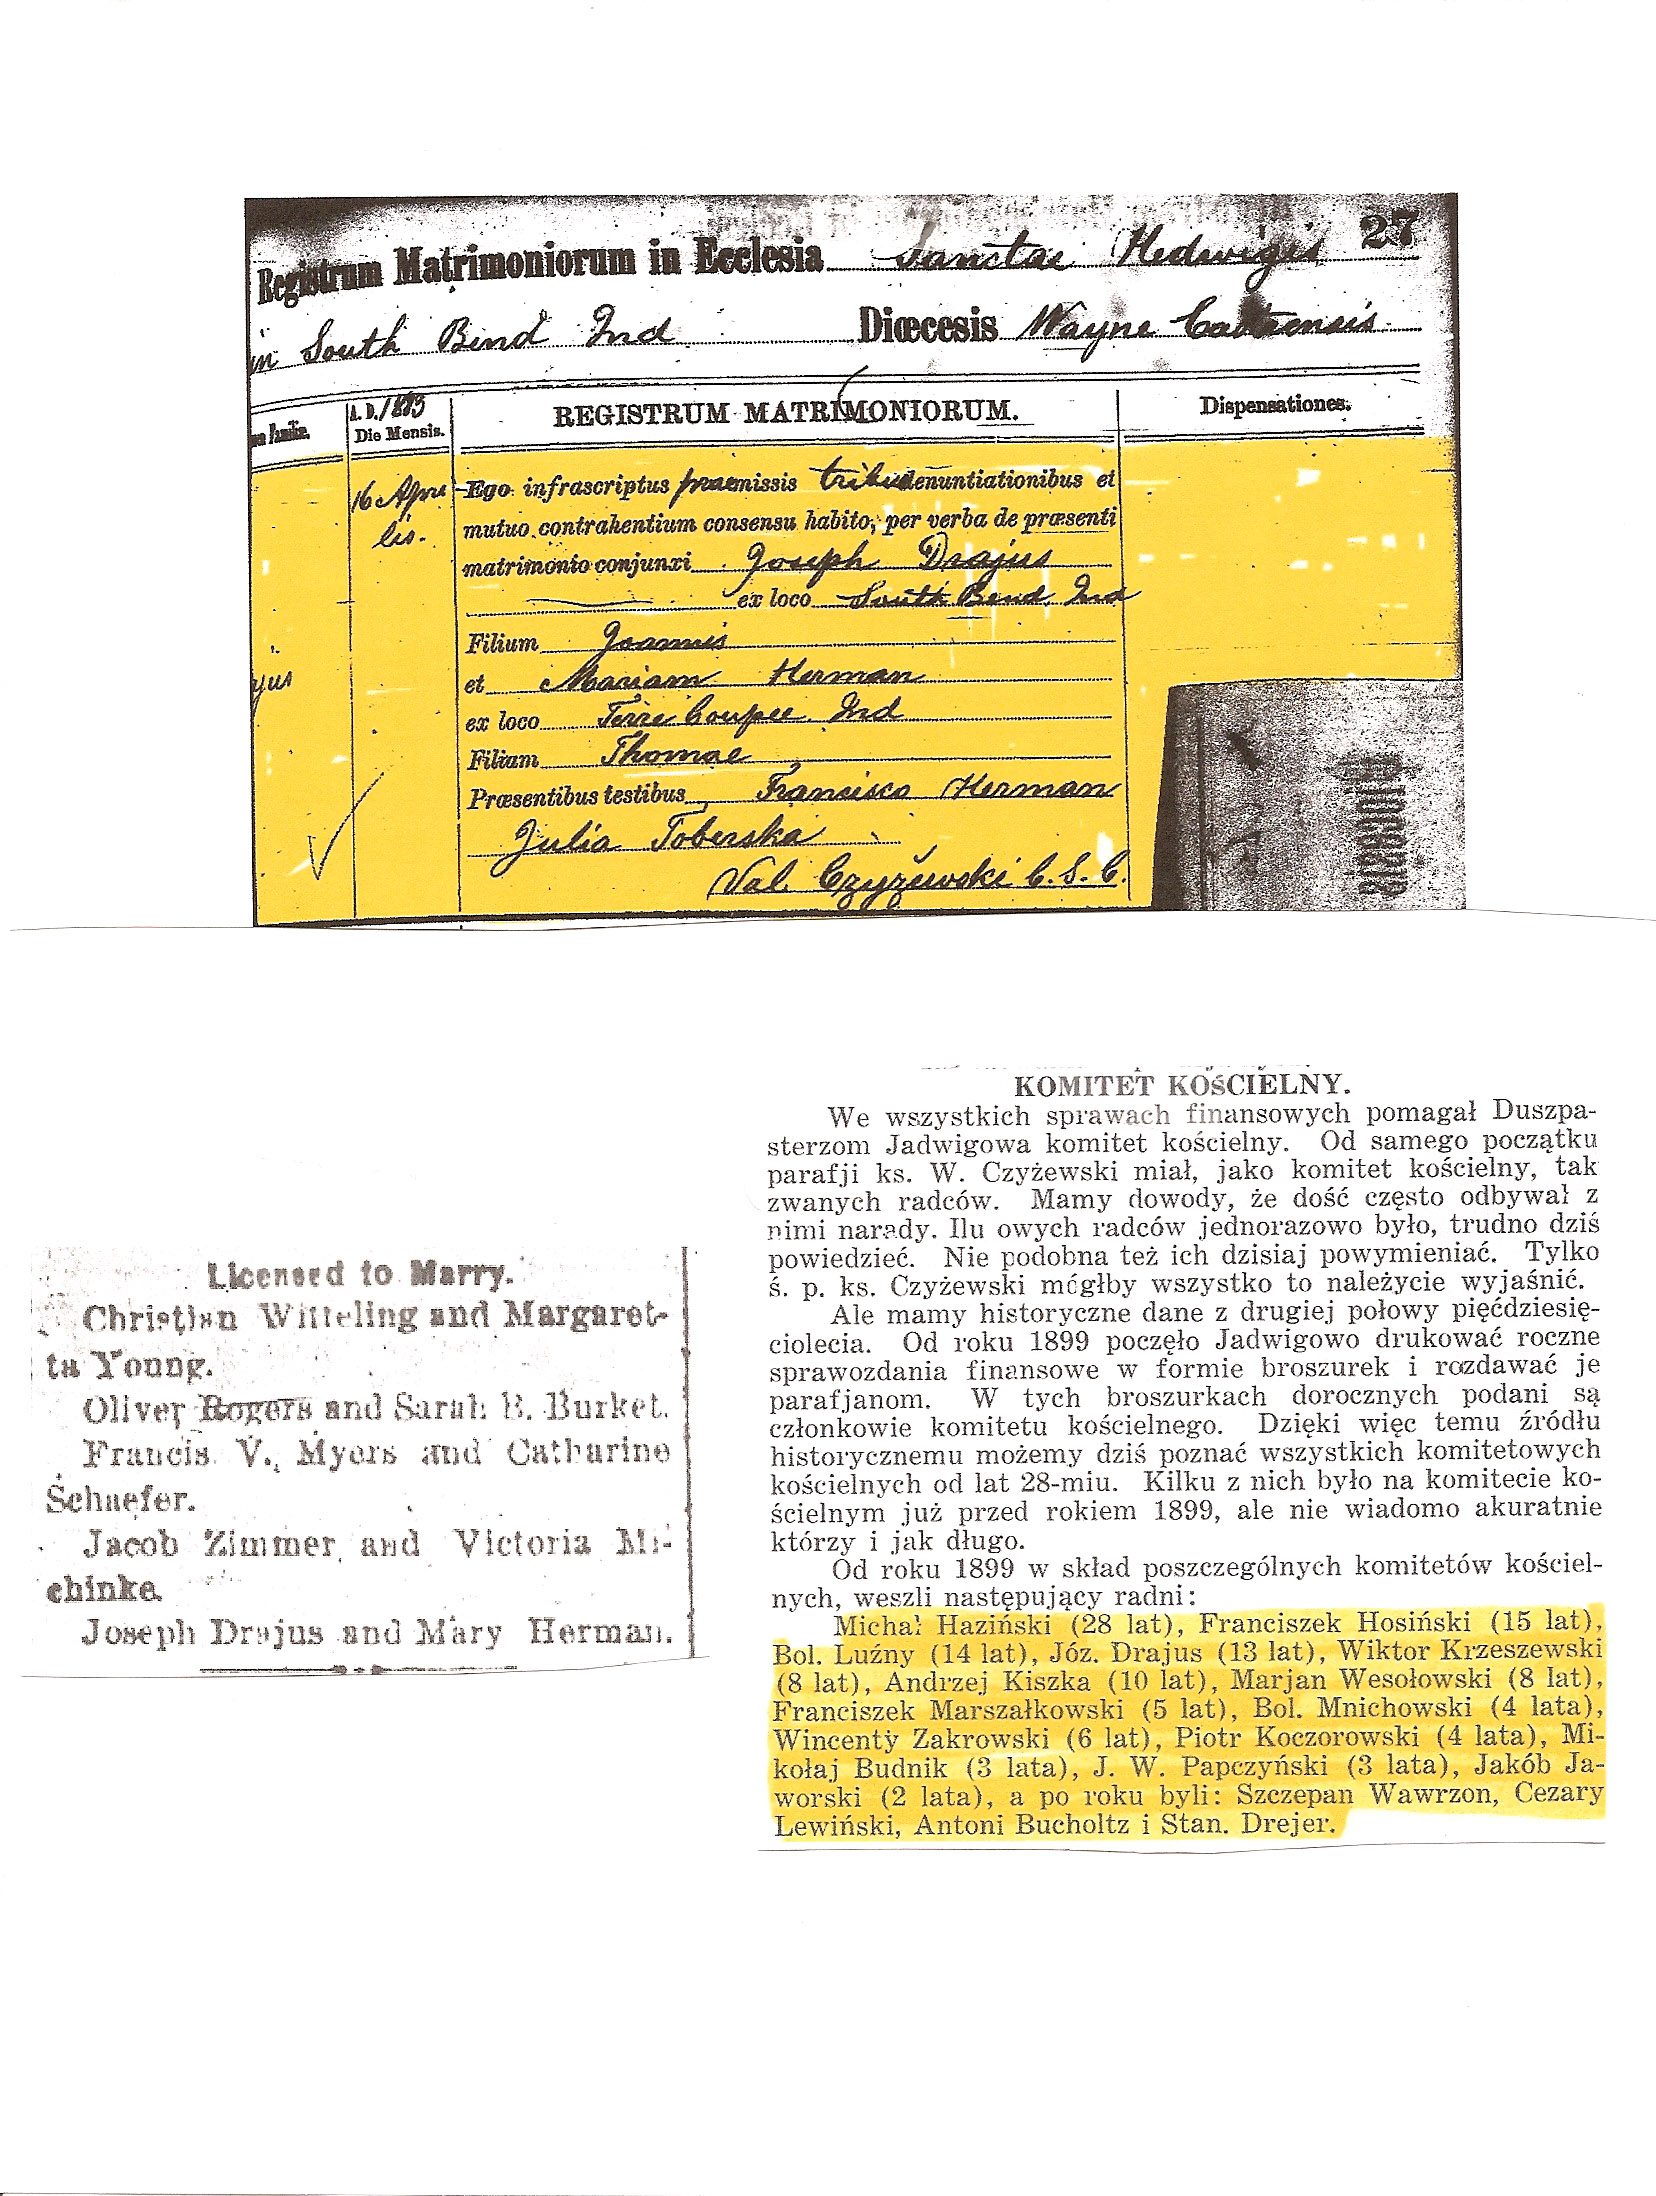 27
Registrum Matrimoniorum in Ecclesia Sanctae Hedwigis
in South Bend Ind Diœcesis Wayne Castrensis
A. D. 1883
Die Mensis.
REGISTRUM MATRIMONIORUM.
Dispensationes.
16 Apri
lis.
Ego infrascriptus praemissis tribus denuntiationibus et
mutuo contrahentium consensu habito, per verba de præsenti
matrimonio conjunxi Joseph Drajus
ex loco South Bend, Ind
Filium Joannis
yus
et Mariam Herman
ex loco Terre Coupee Ind
Filiam Thomae
Præsentibus testibus Francisco Herman
Julia Toberska
Val. Czyžewski C. S. C.
Licensed to Marry.
Christian Witteling and Margaret-
ta Young.
Oliver Rogers and Sarah B. Burket.
Francis V. Myers and Catharine
Schaefer.
Jacob Zimmer and Victoria Mi-
chinke.
Joseph Drajus and Mary Herman.
KOMITET KOśCIELNY.
We wszystkich sprawach finansowych pomagał Duszpa-
sterzom Jadwigowa komitet kościelny. Od samego początku
parafji ks. W. Czyżewski miał, jako komitet kościelny, tak
zwanych radców. Mamy dowody, że dość często odbywał z
nimi narady. Ilu owych radców jednorazowo było, trudno dziś
powiedzieć. Nie podobna też ich dzisiaj powymieniać. Tylko
ś. p. ks. Czyżewski mógłby wszystko to należycie wyjaśnić.
Ale mamy historyczne dane z drugiej połowy pięćdziesię-
ciolecia. Od roku 1899 poczęło Jadwigowo drukować roczne
sprawozdania finansowe w formie broszurek i rozdawać je
parafjanom. W tych broszurkach dorocznych podani są
członkowie komitetu kościelnego. Dzięki więc temu źródłu
historycznemu możemy dziś poznać wszystkich komitetowych
kościelnych od lat 28-miu. Kilku z nich było na komitecie ko-
ścielnym już przed rokiem 1899, ale nie wiadomo akuratnie
którzy i jak długo.
Od roku 1899 w skład poszczególnych komitetów kościel-
nych, weszli następujący radni:
Michał Haziński (28 lat), Franciszek Hosiński (15 lat),
Bol. Luźny (14 lat), Józ. Drajus (13 lat), Wiktor Krzeszewski
(8 lat), Andrzej Kiszka (10 lat), Marjan Wesołowski (8 lat),
Franciszek Marszałkowski (5 lat), Bol. Mnichowski (4 lata),
Wincenty Zakrowski (6 lat), Piotr Koczorowski (4 lata), Mi-
kołaj Budnik (3 lata), J. W. Papczyński (3 lata), Jakób Ja-
worski (2 lata), a po roku byli: Szczepan Wawrzon, Cezary
Lewiński, Antoni Bucholtz i Stan. Drejer.